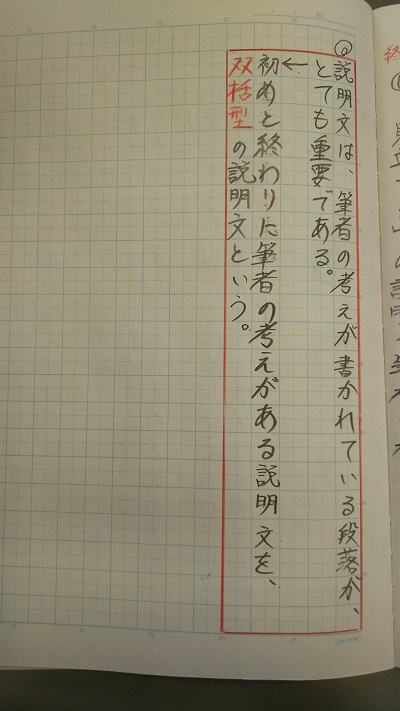 ◎説明文は、筆者の考えが書かれている段落が、
とても重要である。
←
初めと終わりに筆者の考えがある説明文を、
双括型の説明文という。
終